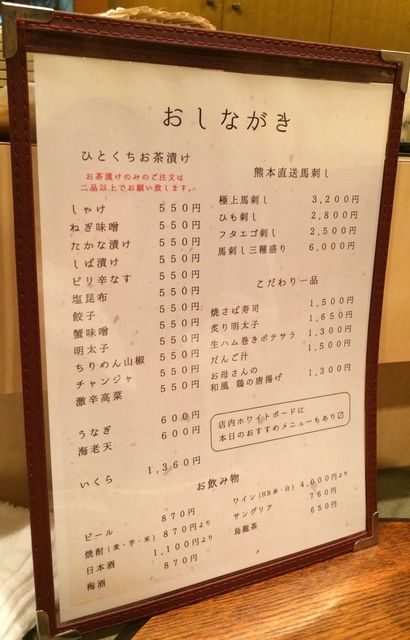 おしながき
ひとくちお茶漬け
お茶漬けのみのご注文は
二品以上でお願い致します。
しゃけ 550円
ねぎ味噌 550円
たかな漬け 550円
しば漬け 550円
ピリ辛なす 550円
塩昆布 550円
餃子 550円
蟹味噌 550円
明太子 550円
ちりめん山椒 550円
チャンジャ 550円
激辛高菜 550円
うなぎ 600円
海老天 600円
いくら 1,360円
熊本直送馬刺し
極上馬刺し 3,200円
ひも刺し 2,800円
フタエゴ刺し 2,500円
馬刺し三種盛り 6,000円
こだわり一品
焼さば寿司 1,500円
炙り明太子 1,650円
生ハム巻きポテサラ 1,300円
だんご汁 1,500円
お母さんの
和風 鶏の唐揚げ 1,300円
店内ホワイトボードに
本日のおすすめメニューもあり〼
お飲み物
ビール 870円
焼酎(麦・芋・米) 870円より
日本酒 1,100円より
梅酒 870円
ワイン(HB赤・白) 4,000円より
サングリア 760円
烏龍茶 650円